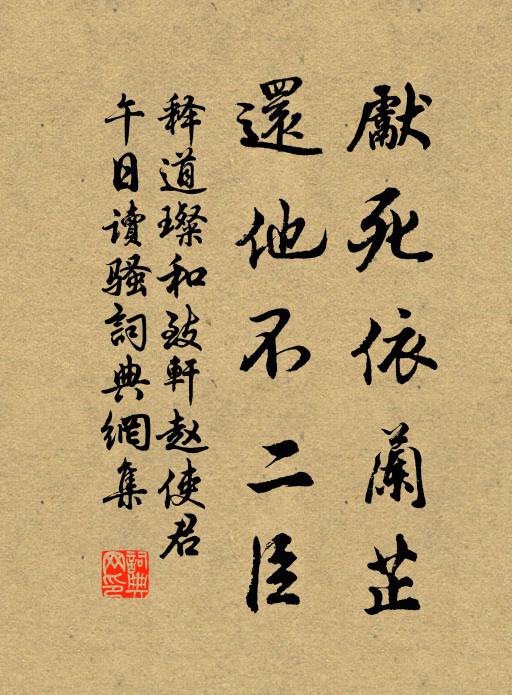 獻死依蘭芷
還他不二臣
释道璨和致軒赵使君
午日讀騷詞典網集
詞典
网印